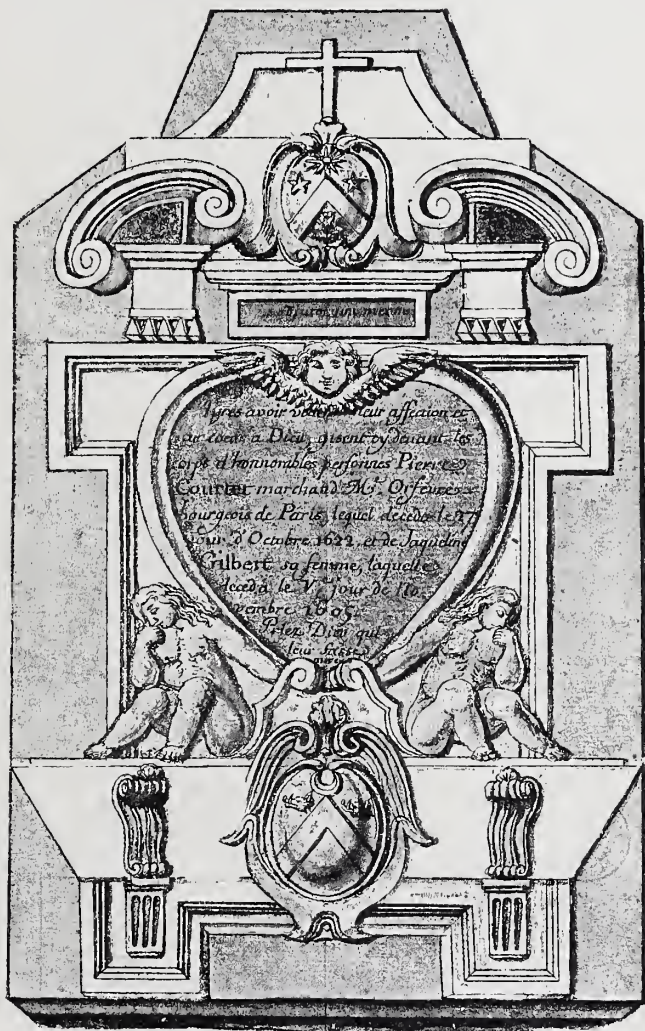 Apres avoir leur affection et
cœur a Dieu, gisent cy devant les
corps d'honnorables personnes Pierre
Courtet marchand Mᵉ. Orfeuvre
bourgeois de Paris, lequel deceda le 27
jour d'Octobre 1622, et de Jaqueline
Gilbert sa femme, laquelle
deceda le V. jour de No
vembre 1605
Priez Dieu qui
leur fasse